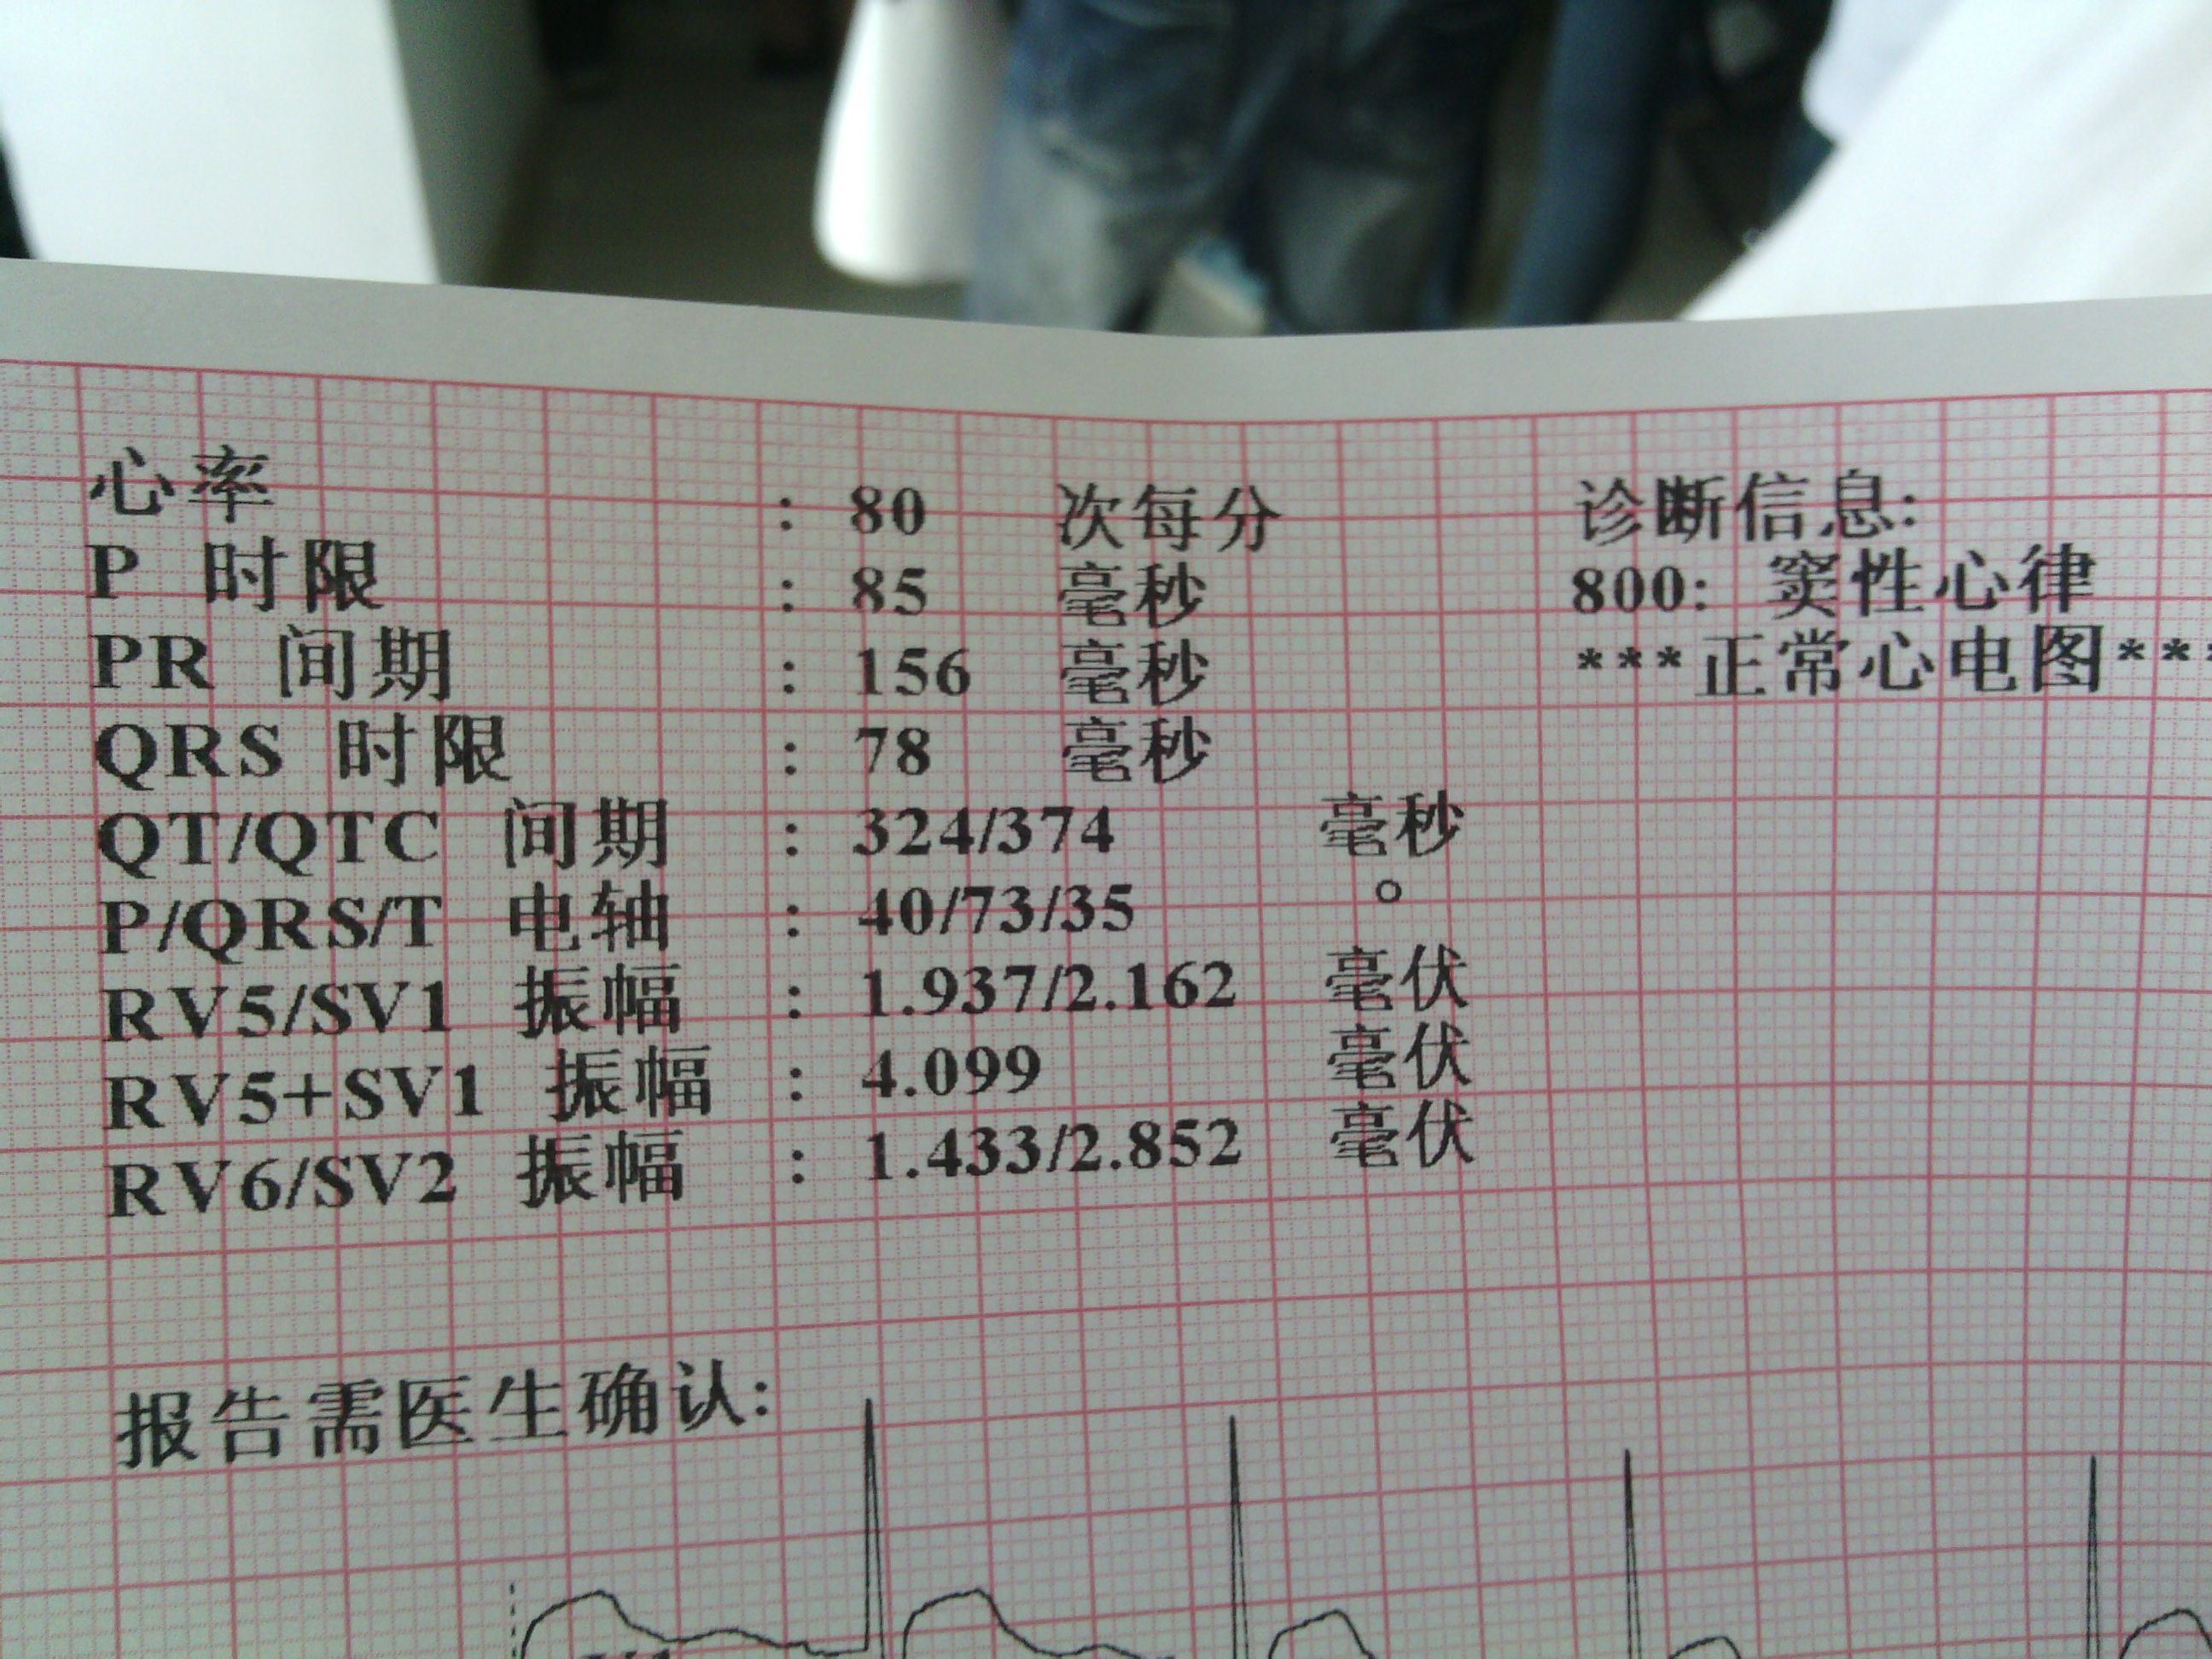 心率 : 80 次每分
P 时限 : 85 毫秒
PR 间期 : 156 毫秒
QRS 时限 : 78 毫秒
QT/QTC 间期 : 324/374 毫秒
P/QRS/T 电轴 : 40/73/35 °
RV5/SV1 振幅 : 1.937/2.162 毫伏
RV5+SV1 振幅 : 4.099 毫伏
RV6/SV2 振幅 : 1.433/2.852 毫伏
诊断信息:
800: 窦性心律
***正常心电图***
报告需医生确认: